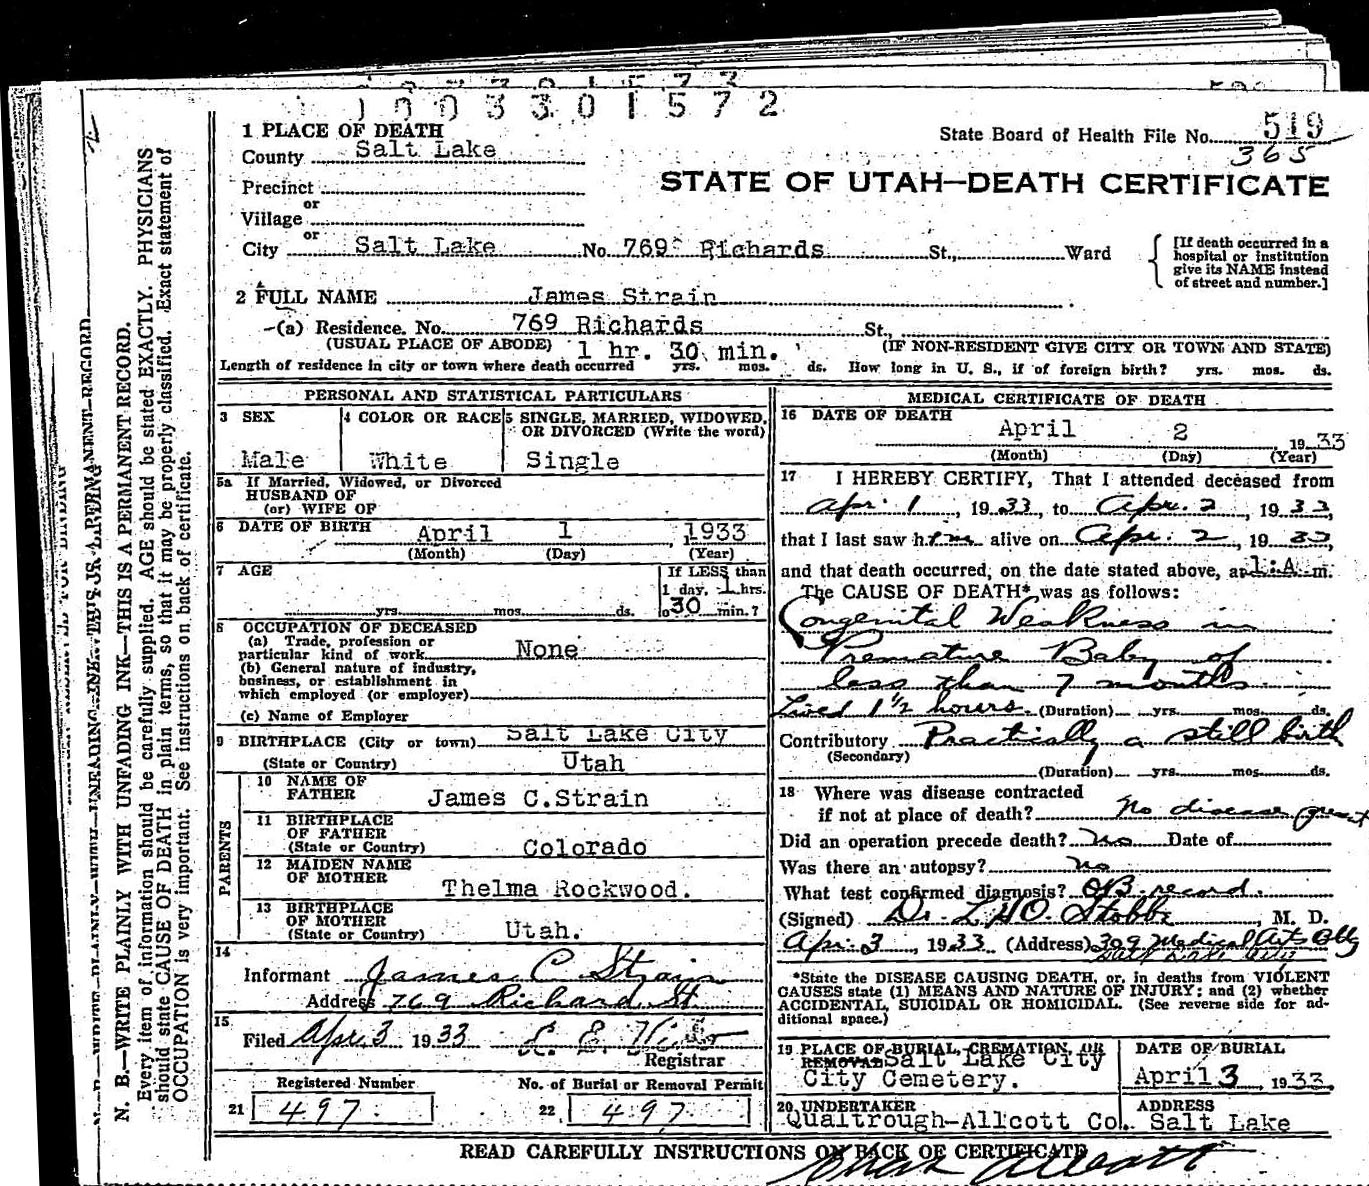 1003301572
State Board of Health File No. 519
365
STATE OF UTAH—DEATH CERTIFICATE
1 PLACE OF DEATH
County Salt Lake
Precinct
or
Village
or
City Salt Lake No. 769 Richards St., Ward
[If death occurred in a
hospital or institution
give its NAME instead
of street and number.]
2 FULL NAME James Strain
(a) Residence. No. 769 Richards St.,
(USUAL PLACE OF ABODE) 1 hr. 30 min. (IF NON-RESIDENT GIVE CITY OR TOWN AND STATE)
Length of residence in city or town where death occurred yrs. mos. ds. How long in U. S., if of foreign birth? yrs. mos. ds.
PERSONAL AND STATISTICAL PARTICULARS
3 SEX 4 COLOR OR RACE 5 SINGLE, MARRIED, WIDOWED,
OR DIVORCED (Write the word)
Male White Single
5a If Married, Widowed, or Divorced
HUSBAND OF
(or) WIFE OF
6 DATE OF BIRTH April 1 1933
(Month) (Day) (Year)
7 AGE If LESS than
1 day, 1 hrs.
yrs. mos. ds. 30 min.?
8 OCCUPATION OF DECEASED
(a) Trade, profession or
particular kind of work None
(b) General nature of industry,
business, or establishment in
which employed (or employer)
(c) Name of Employer
9 BIRTHPLACE (City or town) Salt Lake City
(State or Country) Utah
PARENTS
10 NAME OF
FATHER James C.Strain
11 BIRTHPLACE
OF FATHER
(State or Country) Colorado
12 MAIDEN NAME
OF MOTHER Thelma Rockwood.
13 BIRTHPLACE
OF MOTHER
(State or Country) Utah.
14
Informant James C Strain
Address 769 Richard St
15
Filed Apr 3 1933
Registrar
Registered Number No. of Burial or Removal Permit
21 497 22 497
MEDICAL CERTIFICATE OF DEATH
16 DATE OF DEATH
April 2 1933
(Month) (Day) (Year)
17 I HEREBY CERTIFY, That I attended deceased from
Apr. 1, 1933, to Apr. 2, 1933,
that I last saw him alive on Apr. 2, 1933,
and that death occurred, on the date stated above, at 1:A m.
The CAUSE OF DEATH* was as follows:
Congenital Weakness in
Premature Baby of
less than 7 months
Lived 1 1/2 hours. (Duration) yrs. mos. ds.
Contributory Practically a still birth
(Secondary)
(Duration) yrs. mos. ds.
18 Where was disease contracted
if not at place of death? No disease present
Did an operation precede death? No Date of
Was there an autopsy? no
What test confirmed diagnosis? OB. record.
(Signed) Dr. M. D.
Apr. 3, 1933 (Address) 309 Medical Arts Bldg
Salt Lake City
*State the DISEASE CAUSING DEATH, or, in deaths from VIOLENT
CAUSES state (1) MEANS AND NATURE OF INJURY; and (2) whether
ACCIDENTAL, SUICIDAL OR HOMICIDAL. (See reverse side for ad-
ditional space.)
19 PLACE OF BURIAL, CREMATION, OR DATE OF BURIAL
REMOVAL Salt Lake City
City Cemetery. April 3 1933.
20 UNDERTAKER ADDRESS
Qualtrough-Allcott Co. Salt Lake
READ CAREFULLY INSTRUCTIONS ON BACK OF CERTIFICATE
N. B.—WRITE PLAINLY WITH UNFADING INK—THIS IS A PERMANENT RECORD.
Every item of information should be carefully supplied. AGE should be stated EXACTLY. PHYSICIANS
should state CAUSE OF DEATH in plain terms, so that it may be properly classified. Exact statement of
OCCUPATION is very important. See instructions on back of certificate.